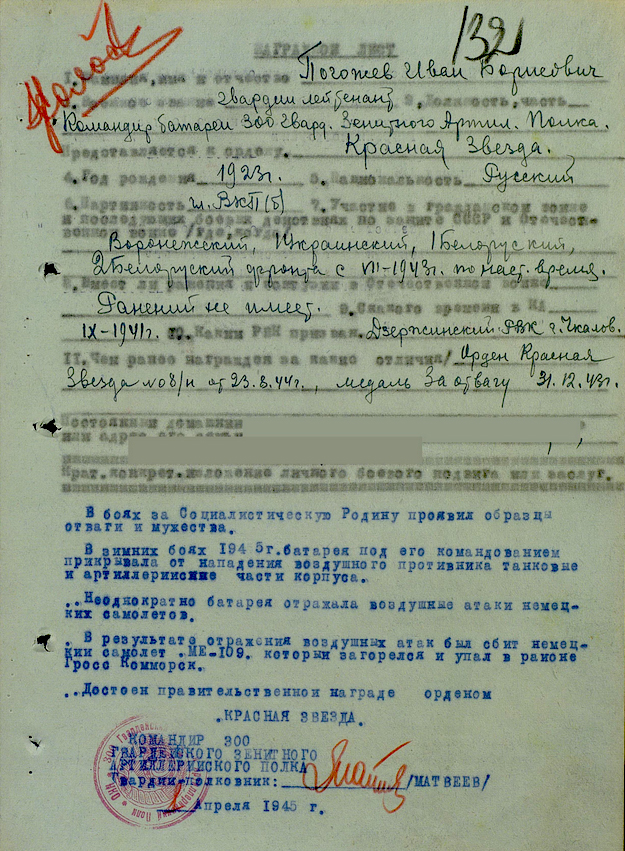 132
НАГРАДНОЙ ЛИСТ
1. Фамилия, имя и отчество Погожев Иван Борисович
2. Военное звание гвардии лейтенант 3. Должность, часть
Командир батареи 300 Гвард. Зенитного Артил. Полка.
Представляется к ордену. Красная Звезда.
4. Год рождения 1923г. 5. Национальность Русский
6. Партийность чл. ВКП(б) 7. Участие в гражданской войне
и последующих боевых действиях по защите СССР и Отечест-
венной войне /где, когда/
Воронежский, 1Украинский, 1Белоруский,
2Белоруский фронта с VII-1943г. по наст. время.
8. Имеет ли ранения и контузии в Отечественной войне
Ранений не имеет. 9. С какого времени в КА
IX-1941г. 10. Каким РВК призван. Дзержинский РВК г. Чкалов.
11. Чем ранее награждея за какие отличия/ Орден Красная
Звезда № 08/н от 23.8.44г., медаль За отвагу 31.12.43г.
Постоянный домашний
или адрес его семьи
Крат. конкрет. изложение личного боевого подвига или заслуг.
В боях за Социалистическую Родину проявил образцы
отваги и мужества.
В зимних боях 1945г. батарея под его командованием
прикрывала от нападения воздушного противника танковые
и артиллериисние части корпуса.
..Неоднократно батарея отражала воздушные атаки немец-
ких самолетов.
. В результате отражения воздушных атак был сбит немец-
кии самолет .МЕ-109. которыи загорелся и упал в районе
Гросс Комморск.
..Достоен правительственнои награде орденом
.КРАСНАЯ ЗВЕЗДА.
КОМАНДИР 300
ГВАРДЕЙСКОГО ЗЕНИТНОГО
АРТИЛЛЕРИЙСКОГО ПОЛКА
Гвардии-полковник: /МАТВЕЕВ/
Апреля 1945 г.